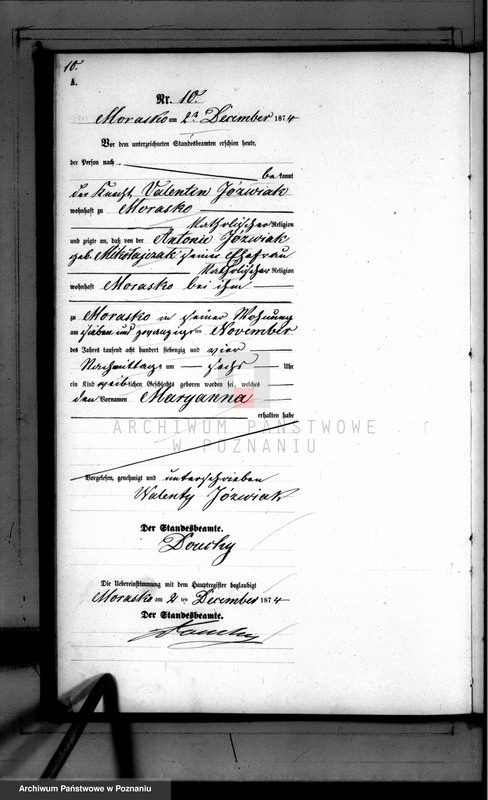 10.
A.
Nr. 10.
Morasko am 2 December 1874
Vor dem unterzeichneten Standesbeamten erschien heute,
der Person nach
bekannt
der Knecht Valentin Józwiak
wohnhaft zu Morasko
Katholischer Religion
und zeigte an, daß von der Antonie Józwiak
geb. Mikołajczak seiner Ehefrau
Katholischer Religion
wohnhaft Morasko bei ihm
zu Morasko in seiner Wohnung
am sieben und zwanzigsten November
des Jahres tausend acht hundert siebenzig und vier
Nachmittags um sechs Uhr
ein Kind weiblichen Geschlechts geboren worden sei, welches
den Vornamen Maryanna
erhalten habe
ARCHIWUM PAŃSTWOWE
W POZNANIU
Vorgelesen, genehmigt und unterschrieben
Walenty Józwiak
Der Standesbeamte.
Die Uebereinstimmung mit dem Hauptregister beglaubigt
Morasko am 2 ten December 1874
Der Standesbeamte.
Archiwum Państwowe w Poznaniu